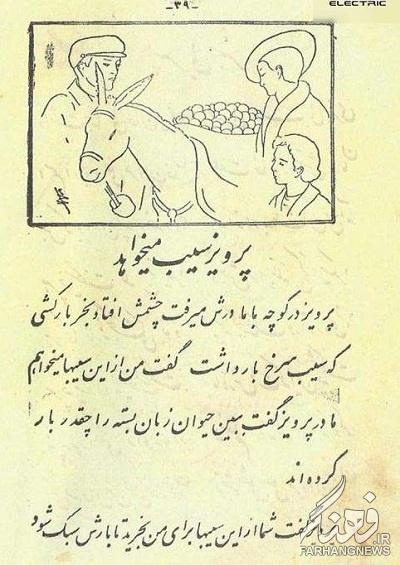 ELECTRIC
-۳۹-
پرویز سیب میخواهد
پرویز در کوچه با مادرش میرفت چشمش افتاد بخر بارکشی
که سیب سرخ بار داشت گفت من از این سیبها میخواهم
مادر پرویز گفت ببین حیوان زبان بسته را چقدر بار
کرده اند
گفت شما از این سیبها برای من بخرید تا بارش سبک شود
فرهنگ
FARHANGNEWS.IR